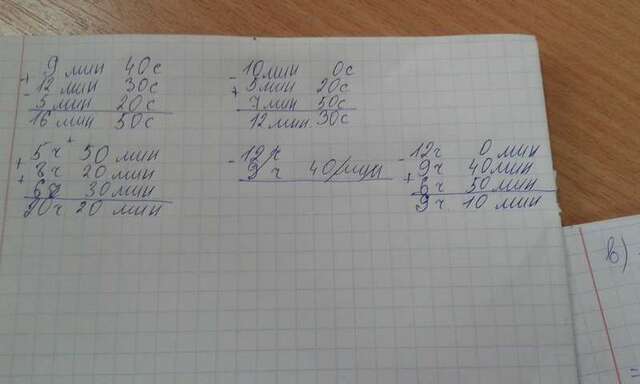 9 мин 40с
+ 12 мин 30с
- 5 мин 20с
16 мин 50с
- 10 мин 0с
+ 5 мин 20с
7 мин 50с
12 мин 30с
+ 5ч 50 мин
+ 8ч 20 мин
6ч 30 мин
20ч 20 мин
- 12ч
9ч 40 мин
- 12ч 0 мин
+ 9ч 40 мин
6ч 50 мин
9ч 10 мин
в)